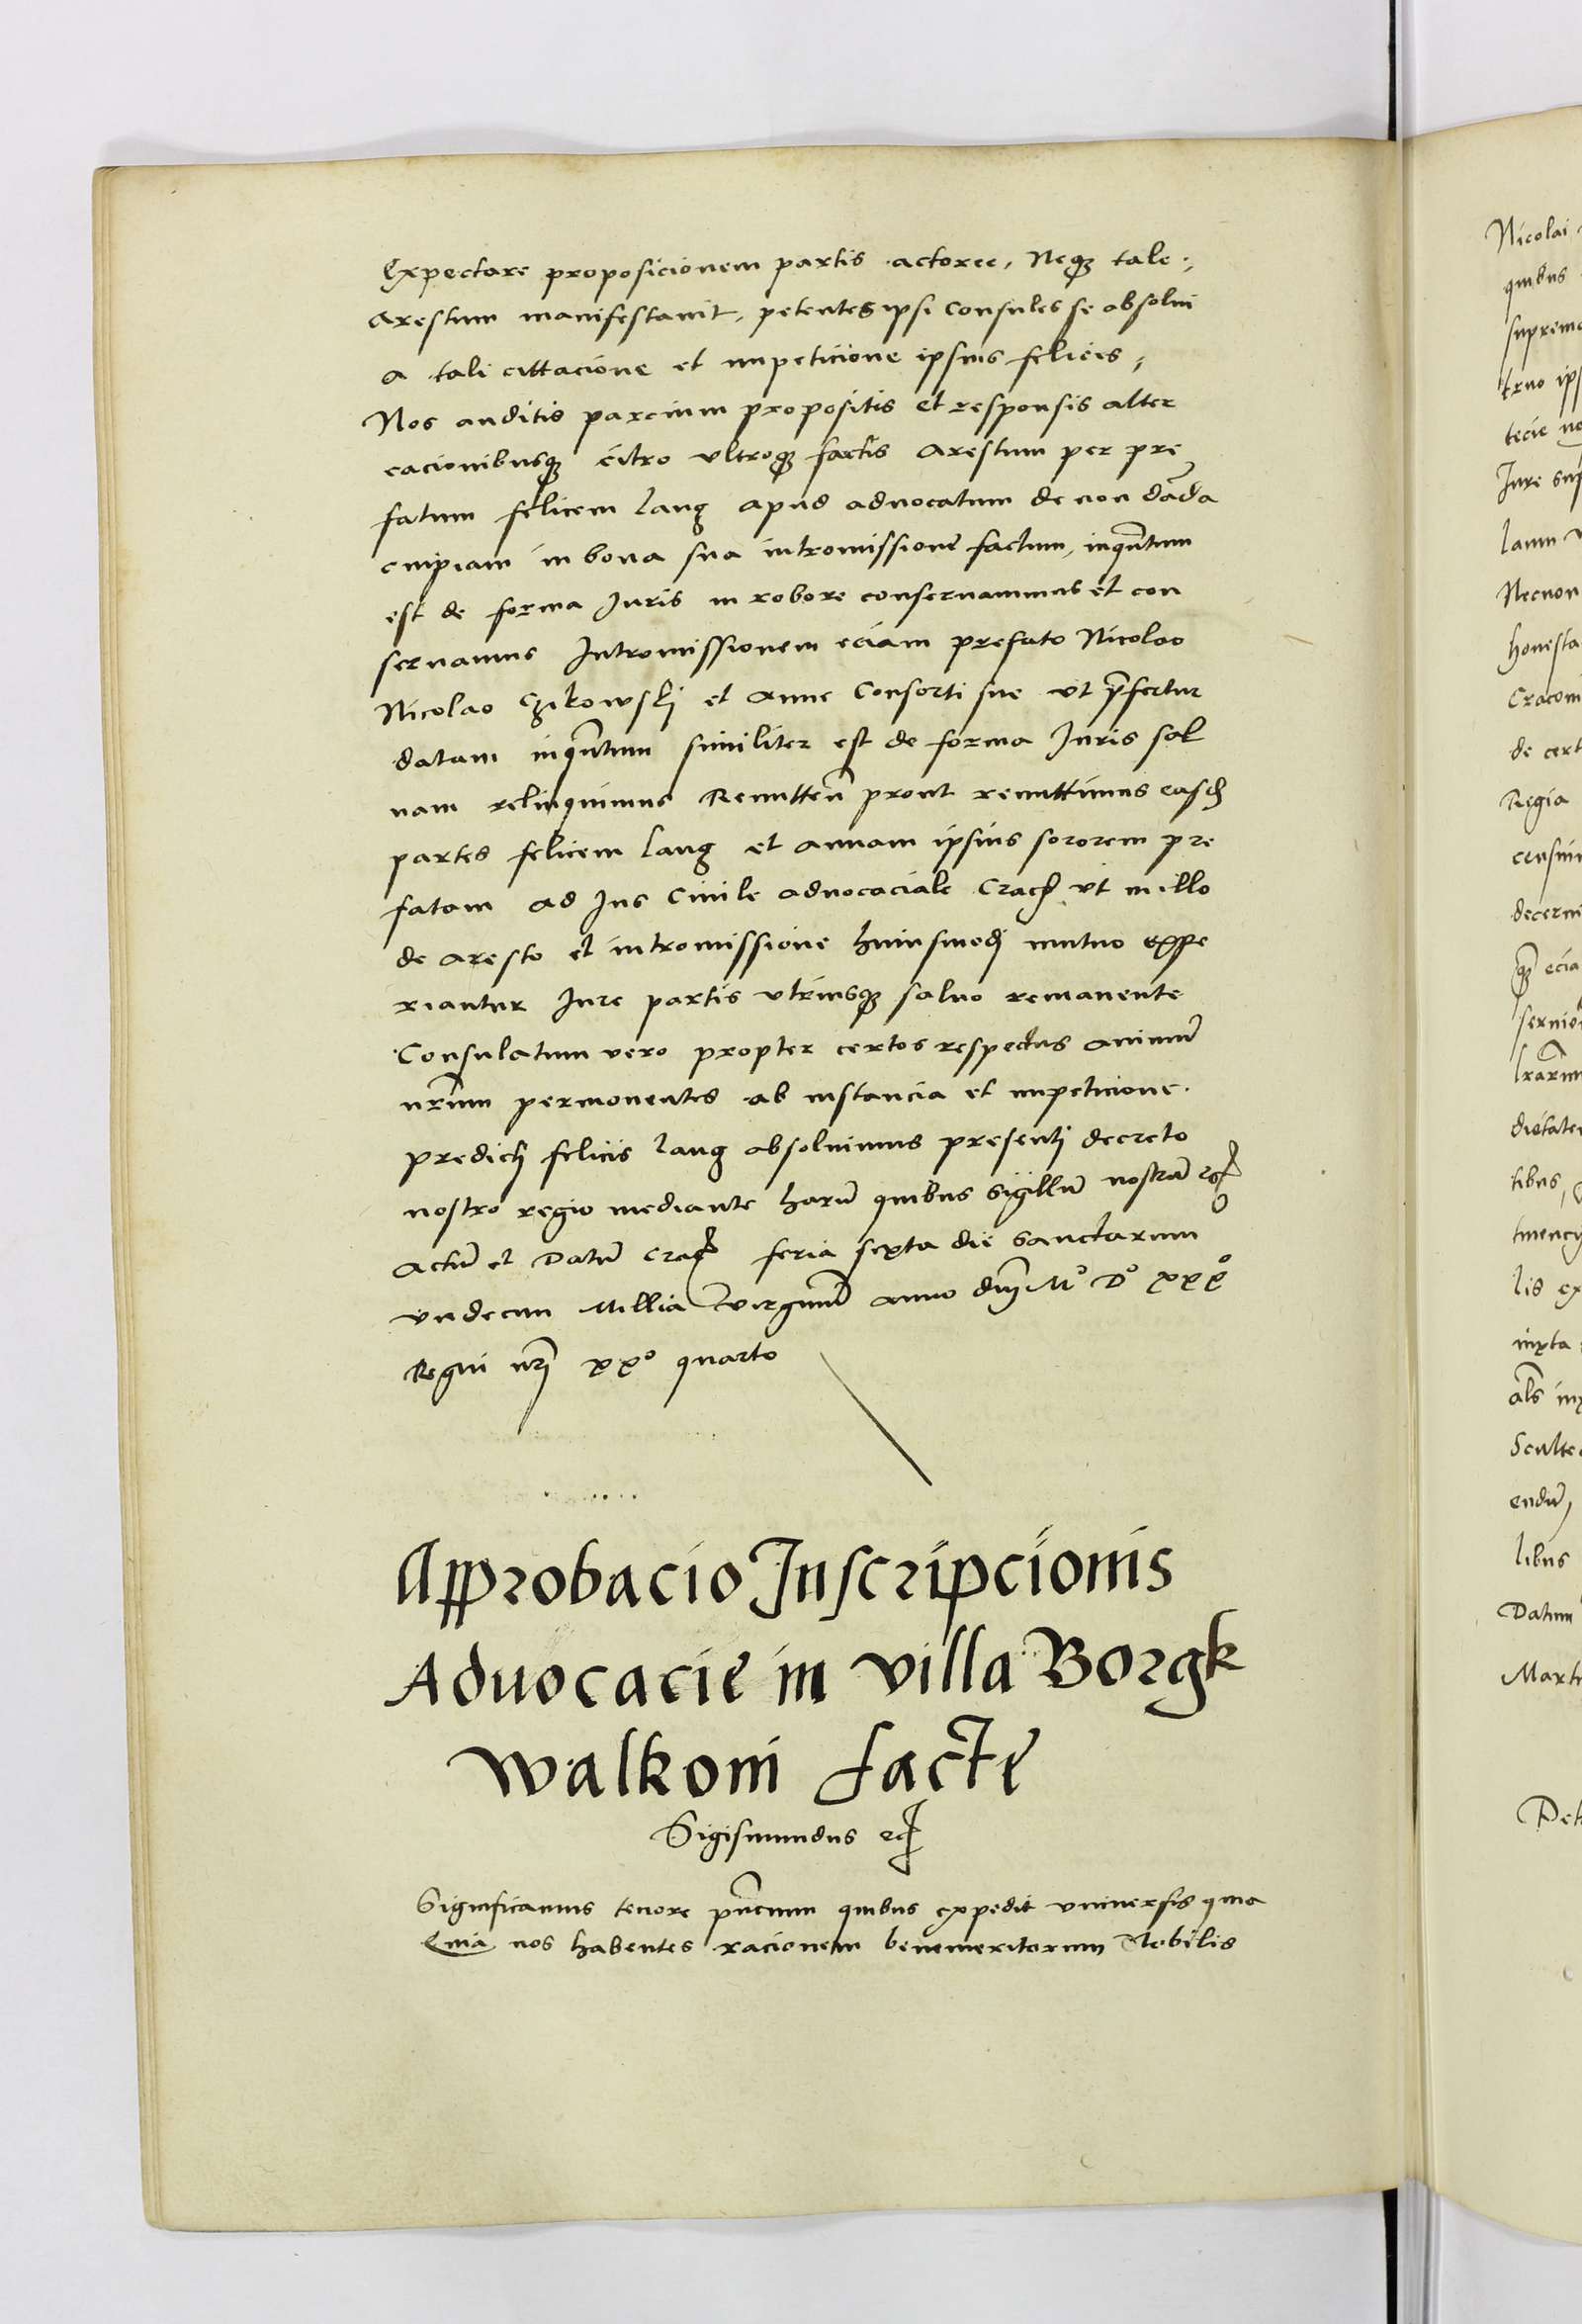 Expectare proposicionem partis actoree, Neqꝫ tale
Arestum manifestauit, petentes ipsi Consules se absolui
a tali cittacione et impeticione ipsius felicis,
Nos auditis parcium propositis et responsis alter
cacionibusqꝫ citro vltroqꝫ factis Arestum per pre
fatum felicem Lang apud aduocatum de non dãda
cuipiam in bona sua intromissionẽ factum, inqũtum
est de forma Iuris in robore conseruauimus et con
seruamus Intromissionem eciam prefato Nicolao
Nicolao Czikowskÿ et Anne Consorti sue vt p̃fertur
datam inqũtum similiter est de forma Iuris sal
uam relinquimus Remitteñ prout remittimus easd
partes felicem Lang et Annam ipsius sororem pre
fatam ad Ius Ciuile aduocaciale Crac vt in illo
de aresto et intromissione huiusmodj mutuo expe
riantur Iure partis vtriusqꝫ saluo remanente
Consulatum vero propter certos respectus animũ
nr̃um permouentes ab instancia et impeticione
predictj felicis Lang absoluimus presentj decreto
nostro regio mediante harũ quibus Sigillũ nostrũ etc
Actũ et Datũ Crac feria sexta die Sanctarum
vndecim Millia virginũ anno dnĩ Mº Dº xxxº
Regni nr̃j xxº quarto
Approbacio Inscripcionis
Aduocacie in villa Borgk
Walkoni facte
Sigismundus etc
Significamus tenore pñcium quibus expedit vniuersis quia
Quia nos habentes racionem benemeritorum Nobilis
Nicolai
quibus
suprem
truo ip
tecie
Iure sup
Necnon
honesta
Cracoui
de cert
Regia
decerni
ecia
dictate
tibus,
lis ex
iuxta
als̃
Sculte
endũ,
libus
Datum
Mart
Pet